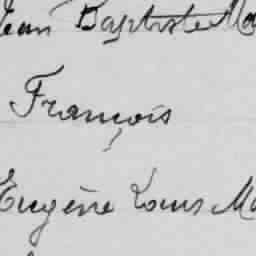 Jean Baptiste Ma
François
Eugène Louis Ma